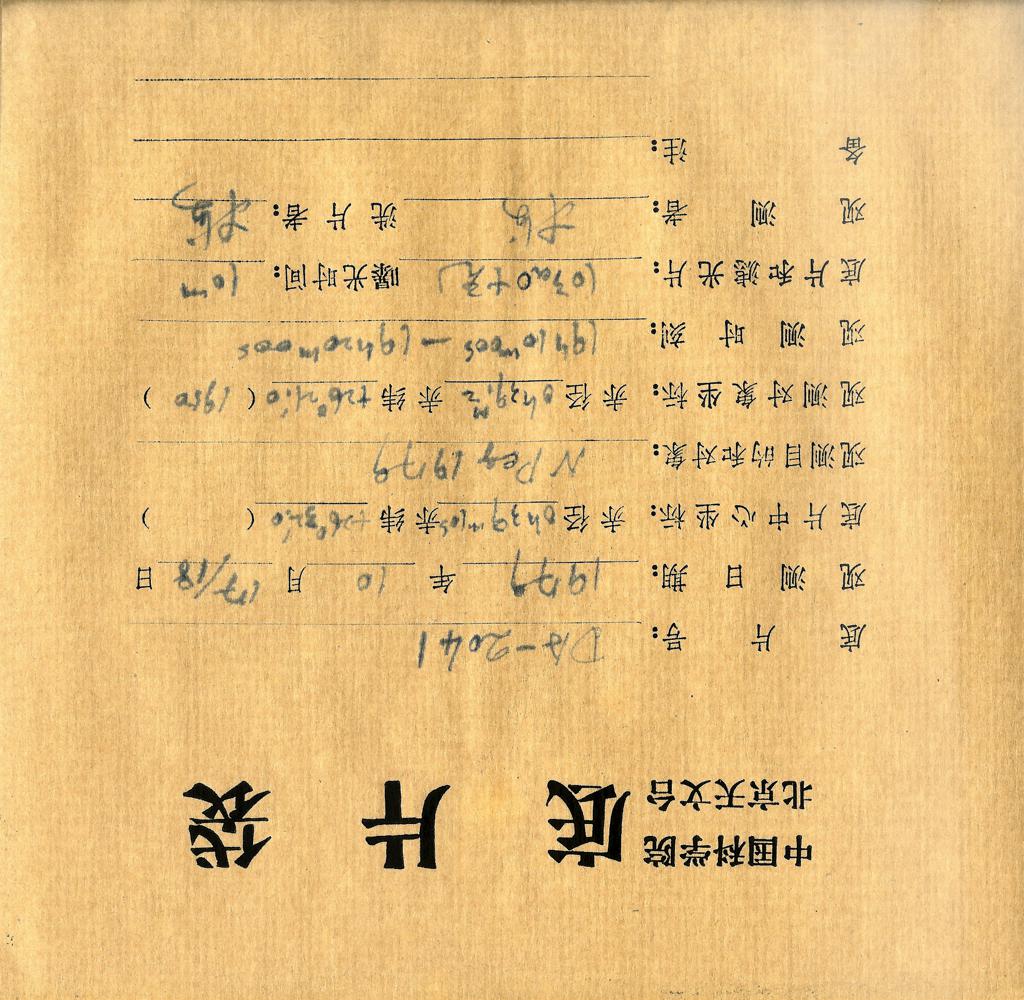 中国科学院
北京天文台 底片袋
底片号: DA-2041
观测日期: 1979年10月17/18日
底片中心坐标: 赤经0h39m10s赤纬+26°32′.0( )
观测目的和对象: N Peg 1979
观测对象坐标: 赤经0h39m.2赤纬+26°21′.0(1950)
观测时刻: 19h10m00s—19h20m00s
底片和滤光片: 103aO+ 曝光时间: 10m
观测者: 洗片者:
备注: